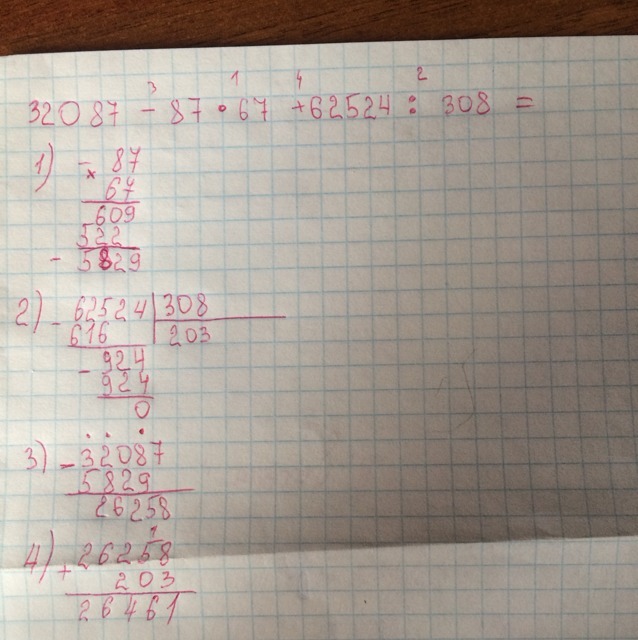 3 1 4 2
32087 - 87 · 67 + 62524 : 308 =
1) - 87
× 67
609
522
- 5829
2) - 62524 | 308
616 | 203
- 924
924
0
3) - 32087
5829
26258
1
4) + 26258
203
26461